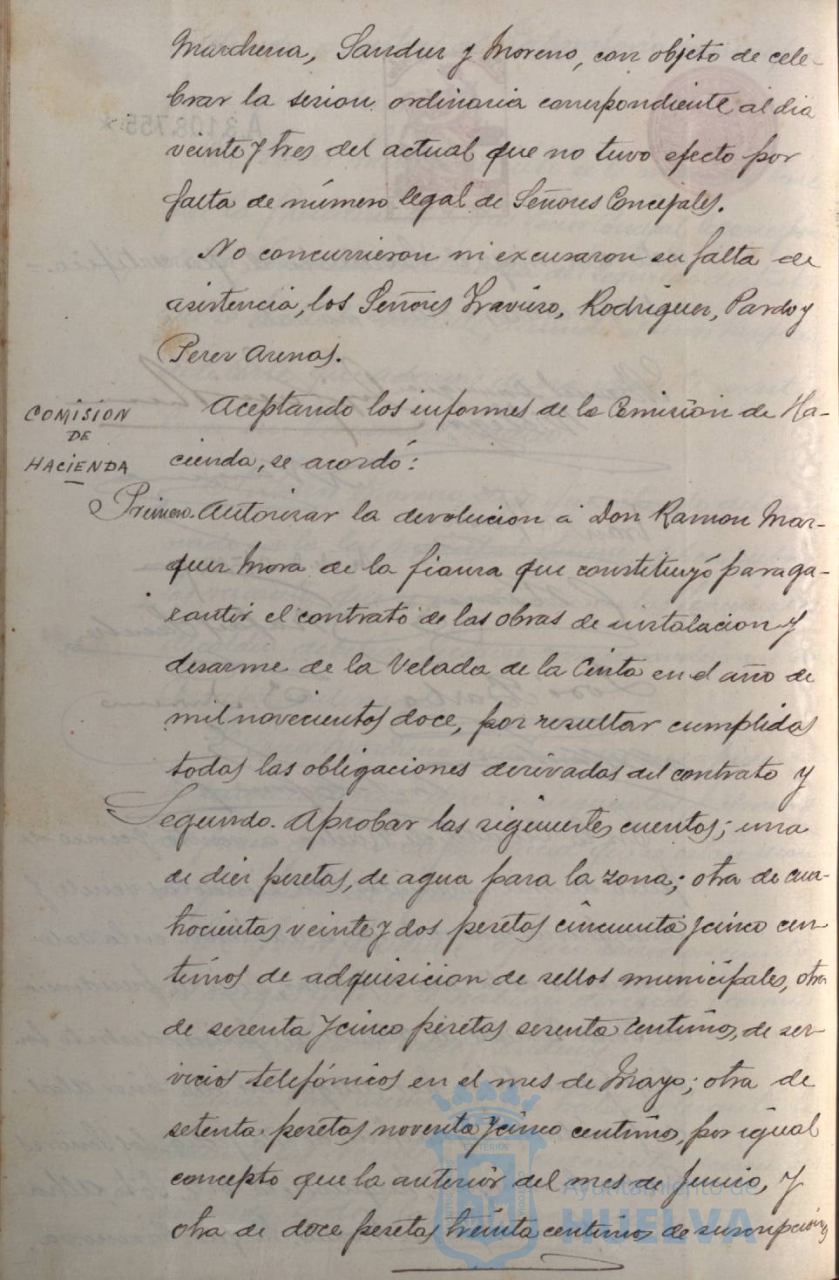 Marchena, Sandur y Moreno, con objeto de cele-
brar la sesion ordinaria correspondiente al dia
veinte y tres del actual que no tuvo efecto por
falta de número legal de Señores Concejales.
No concurrieron ni excusaron su falta de
asistencia, los Señores Travieso, Rodriguez, Pardo y
Perez Arenas.
COMISION
DE
HACIENDA
Aceptando los informes de la Comisión de Ha-
cienda, se acordó:
Primero. Autorizar la devolucion á Don Ramon Mar-
quez Mora de la fianza que constituyó para ga-
rantir el contrato de las obras de instalacion y
desarme de la Velada de la Cinta en el año de
mil novecientos doce, por resultar cumplidas
todas las obligaciones derivadas del contrato y
Segundo. Aprobar las siguientes cuentas; una
de diez pesetas, de agua para la zona; otra de cua-
trocientas veinte y dos pesetas cincuenta y cinco cen-
timos de adquisicion de sellos municipales, otra
de sesenta y cinco pesetas sesenta centimos, de ser-
vicios telefónicos en el mes de Mayo; otra de
setenta pesetas noventa y cinco centimos, por igual
concepto que la anterior del mes de Junio, y
otra de doce pesetas treinta centimos de suscripciones
Ayuntamiento de
HUELVA